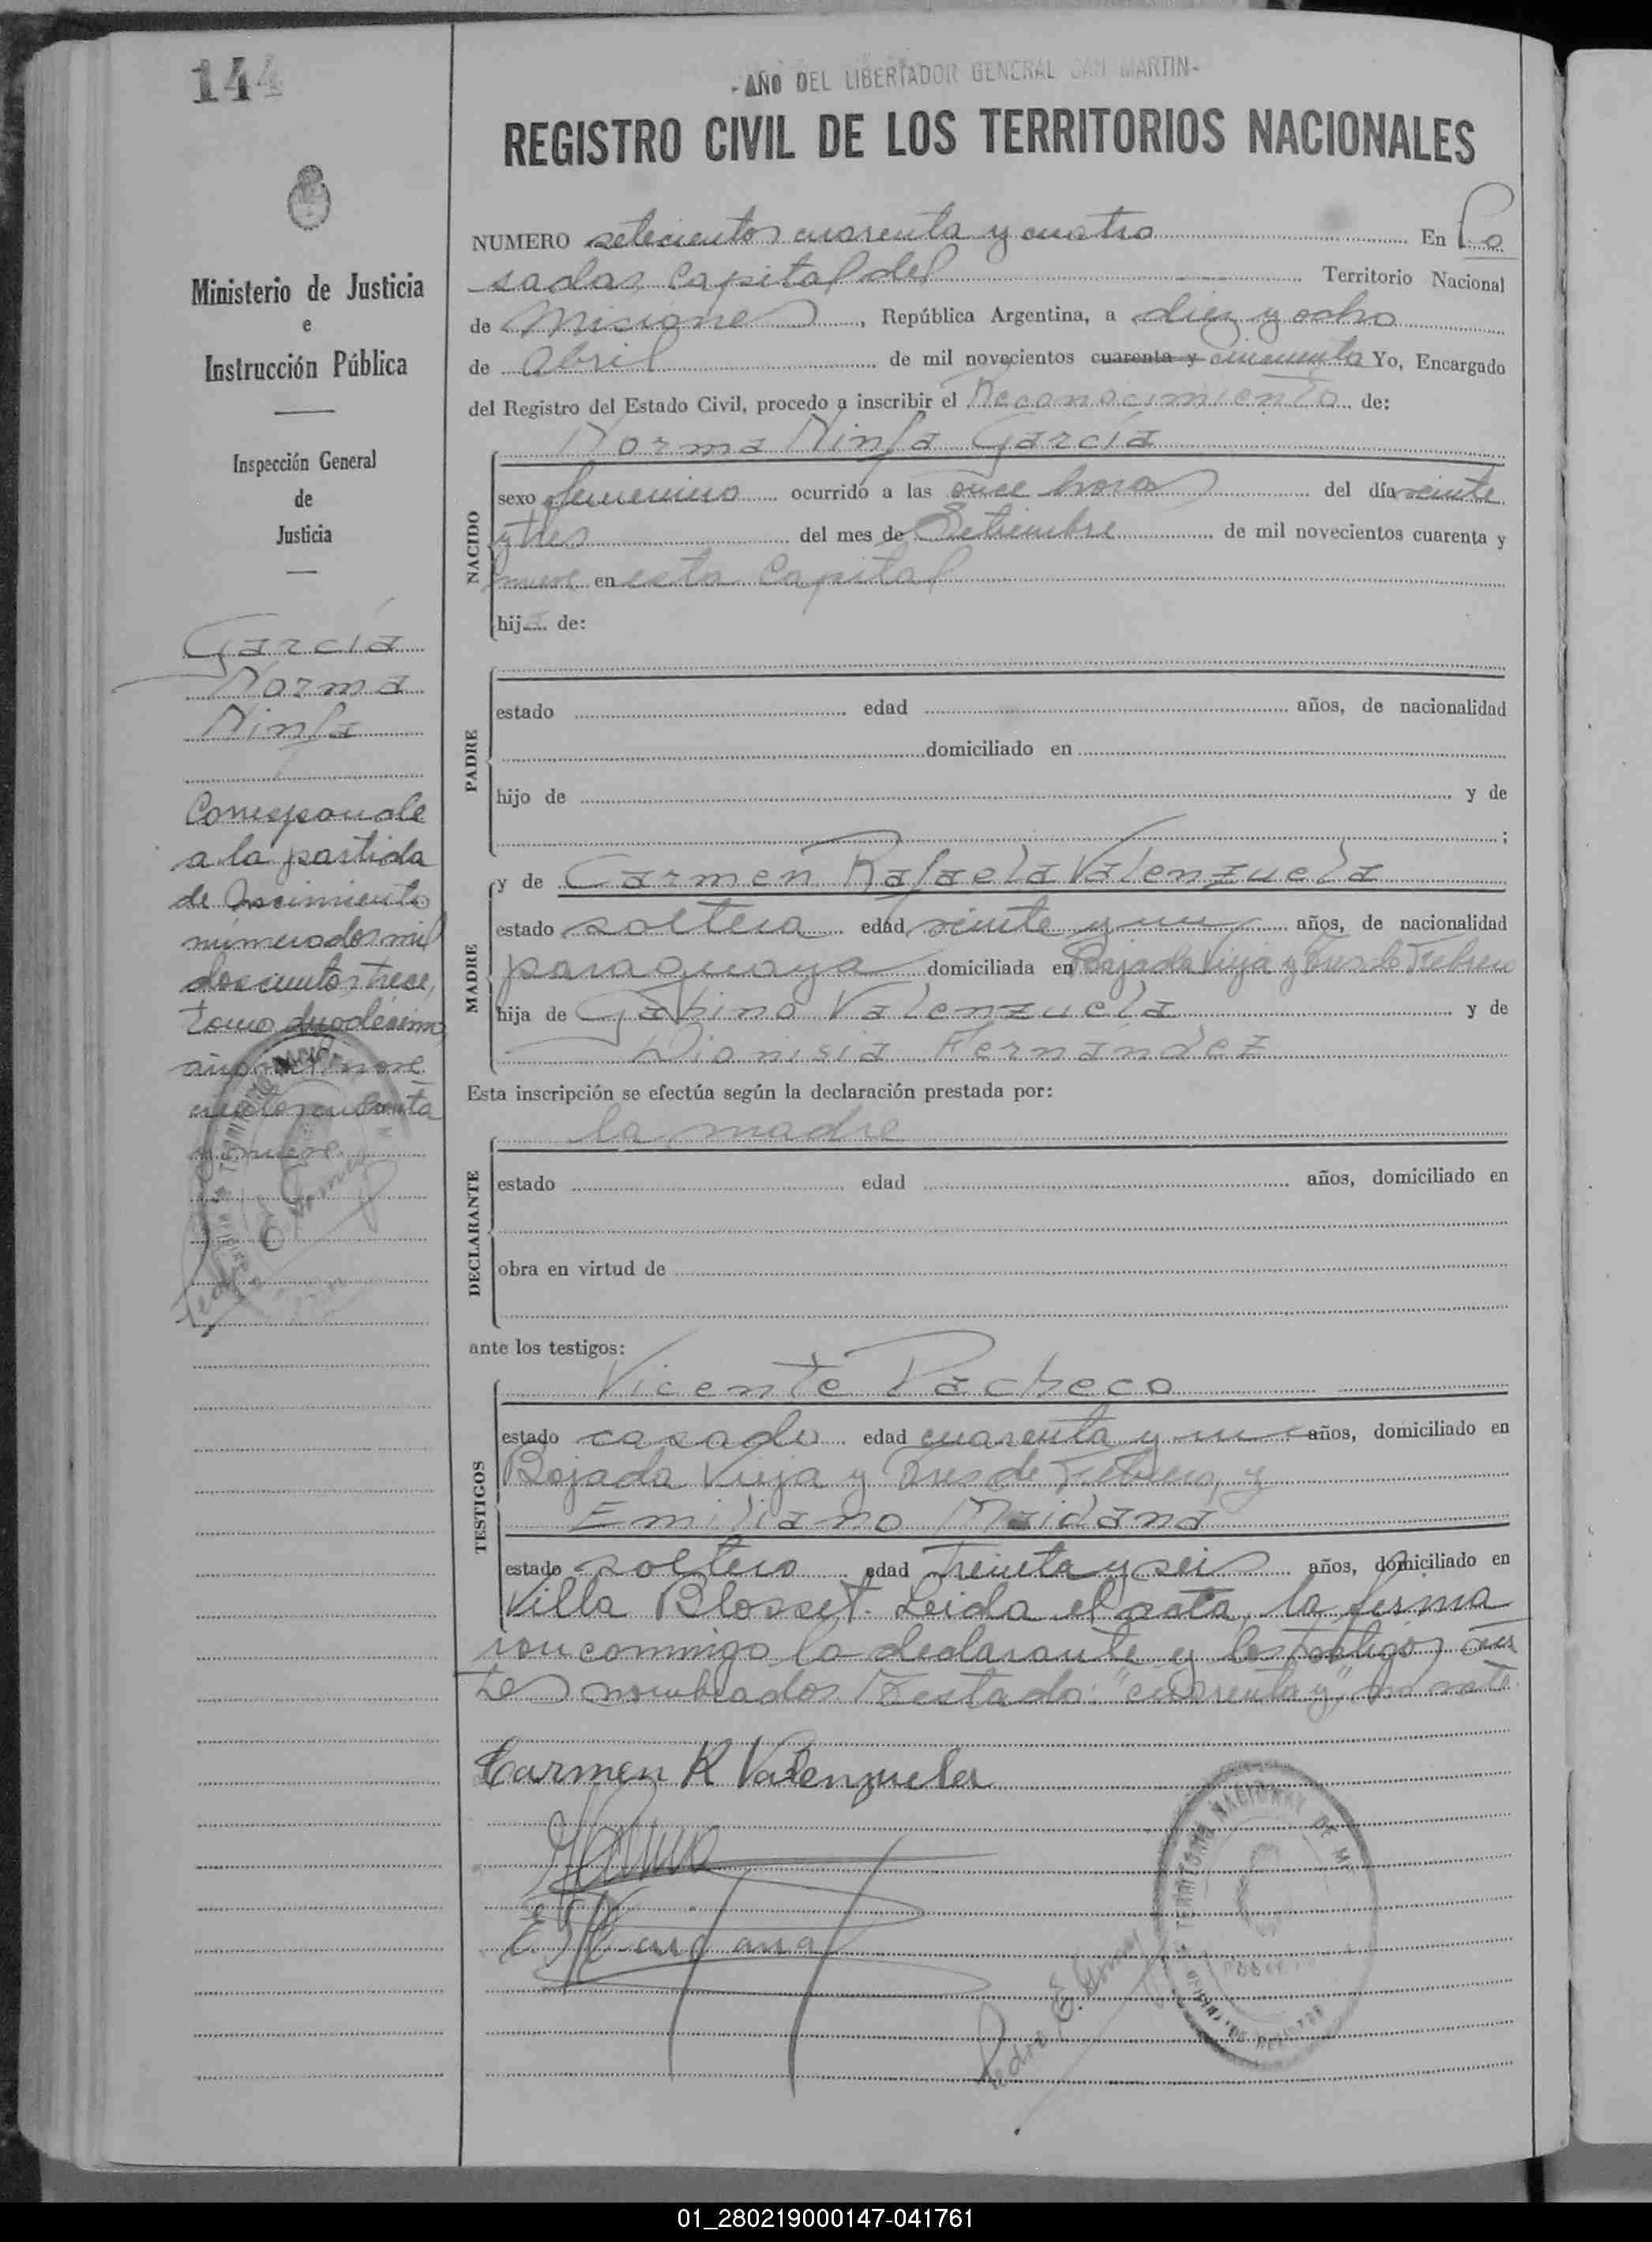 144
- AÑO DEL LIBERTADOR GENERAL SAN MARTIN -
REGISTRO CIVIL DE LOS TERRITORIOS NACIONALES
Ministerio de Justicia
e
Instrucción Pública
Inspección General
de
Justicia
García
Norma
Ninfa
Corresponde
a la partida
de nacimiento
número dos mil
doscientos trece,
tomo duodécimo
año mil nove
cientos cuarenta
y nueve.
NUMERO setecientos cuarenta y cuatro En Po
sadas, Capital del Territorio Nacional
de Misiones, República Argentina, a diez y ocho
de Abril de mil novecientos cuarenta y cincuenta Yo, Encargado
del Registro del Estado Civil, procedo a inscribir el Reconocimiento de:
Norma Ninfa García
NACIDO
sexo femenino ocurrido a las once horas del día veinte
y tres del mes de Setiembre de mil novecientos cuarenta y
nueve en esta Capital
hija de:
PADRE
estado edad años, de nacionalidad
domiciliado en
hijo de y de
;
MADRE
y de Carmen Rafaela Valenzuela
estado soltera edad veinte y un años, de nacionalidad
paraguaya domiciliada en Bajada Vieja y Tres de Febrero
hija de Gabino Valenzuela y de
Dionisia Fernández
Esta inscripción se efectúa según la declaración prestada por:
DECLARANTE
la madre
estado edad años, domiciliado en
obra en virtud de
ante los testigos:
TESTIGOS
Vicente Pacheco
estado casado edad cuarenta y un años, domiciliado en
Bajada Vieja y Tres de Febrero, y
Emiliano Maidana
estado soltero edad treinta y seis años, domiciliado en
Villa Blosset. Leida el acta, la firma
ron conmigo la declarante y los testigos an
tes nombrados. Testado: "cuarenta y", no vale.
Carmen R Valenzuela
E. Maidana
Pedro E. Gomez
TERRITORIO NACIONAL DE MI
POSADAS
01_280219000147-041761